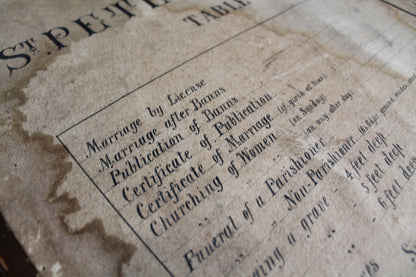 ST. PETE
TABLE
Marriage by License
Marriage after Banns
Publication of Banns
Certificate of Publication (if given at time)
Certificate of Marriage (on Sunday)
Churching of Women (on any other day)
Funeral of a Parishioner
" " Non-Parishioner
ing a grave 4 feet deep
" " 5 feet deep
" " 6 feet deep